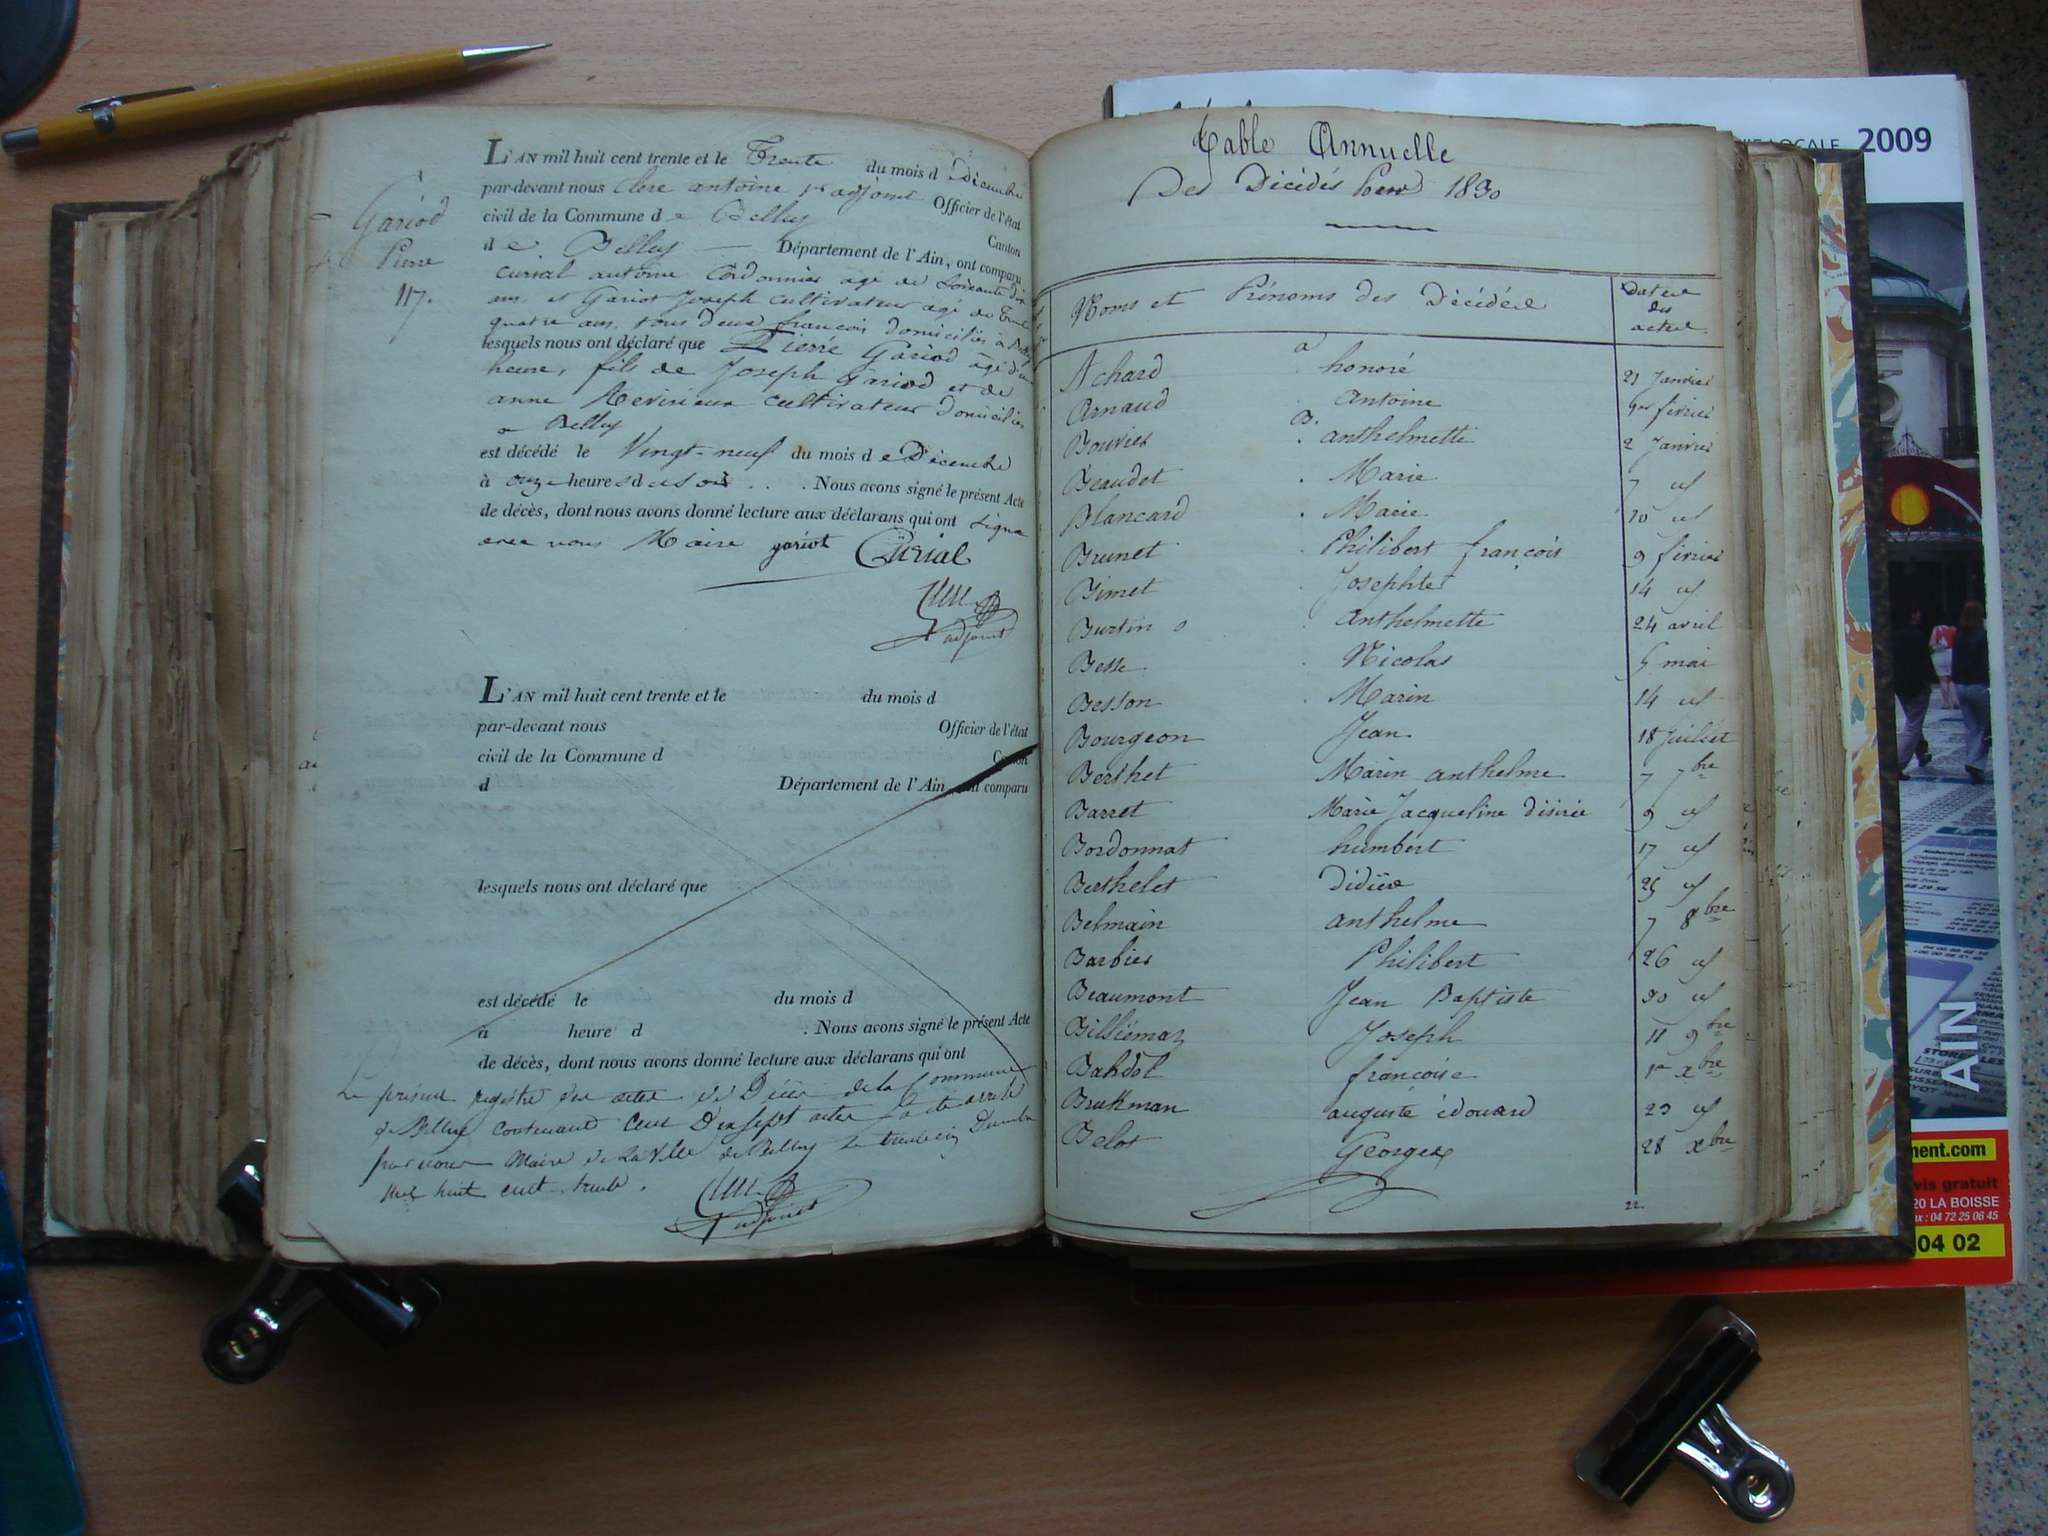 Gariod
Pierre
117.
L'AN mil huit cent trente et le Trente du mois d e Décembre
par-devant nous Clerc antoine 1er adjoint Officier de l'état
civil de la Commune d e Belley Canton
d e Belley Département de l'Ain, ont comparu
Curial antoine Cordonnier agé de soixante dix
ans et Gariot Joseph cultivateur agé de Trente
quatre ans, tous deux françois domiciliés à Belley
lesquels nous ont déclaré que Pierre Gariod âgé d'une
heure, fils de Joseph Gariod et de
anne cultivateur domiciliés
a Belley
est décédé le Vingt-neuf du mois d e Décembre
à onze heures du soir . . . Nous avons signé le présent Acte
de décès, dont nous avons donné lecture aux déclarans qui ont signé
avec nous Maire gariot Curial
adjoint
L'AN mil huit cent trente et le du mois d
par-devant nous Officier de l'état
civil de la Commune d Canton
d Département de l'Ain, ont comparu
lesquels nous ont déclaré que
est décédé le du mois d
à heure d . Nous avons signé le présent Acte
de décès, dont nous avons donné lecture aux déclarans qui ont
Le présent registre des actes de Décès de la Commune
de Belley contenant cent Dixsept actes a été arrêté
par nous Maire de la ville de Belley le trente un Décembre
mil huit cent trente.
adjoint
Table Annuelle
Des Décédés Pour 1830
Noms et Prénoms des Décédés Dates des actes
a
Achard honoré 21 Janvier
Arnaud Antoine 1er février
B.
Bouvier anthelmette 2 Janvier
Beaudet Marie 7 id
Blancard Marie 10 id
Brunet Philibert françois 9 février
Bimet Josephte 14 id
Burtin anthelmette 24 avril
Besse Nicolas 5 mai
Besson Marin 14 id
Bourgeon Jean 18 Juillet
Berthet Marin anthelme 7 7bre
Barret Marie Jacqueline désirée 9 id
Bordonnat humbert 17 id
Berthelet Didière 25 id
Belmain anthelme 7 8bre
Barbier Philibert 26 id
Beaumont Jean Baptiste 30 id
Billiémaz Joseph 11 9bre
Bahdol françoise 1er xbre
Brakman auguste édouard 23 id
Belot Georges 28 xbre
22.
LOCALE 2009
AIN
ment.com
vis gratuit
20 LA BOISSE
: 04 72 25 06 45
04 02